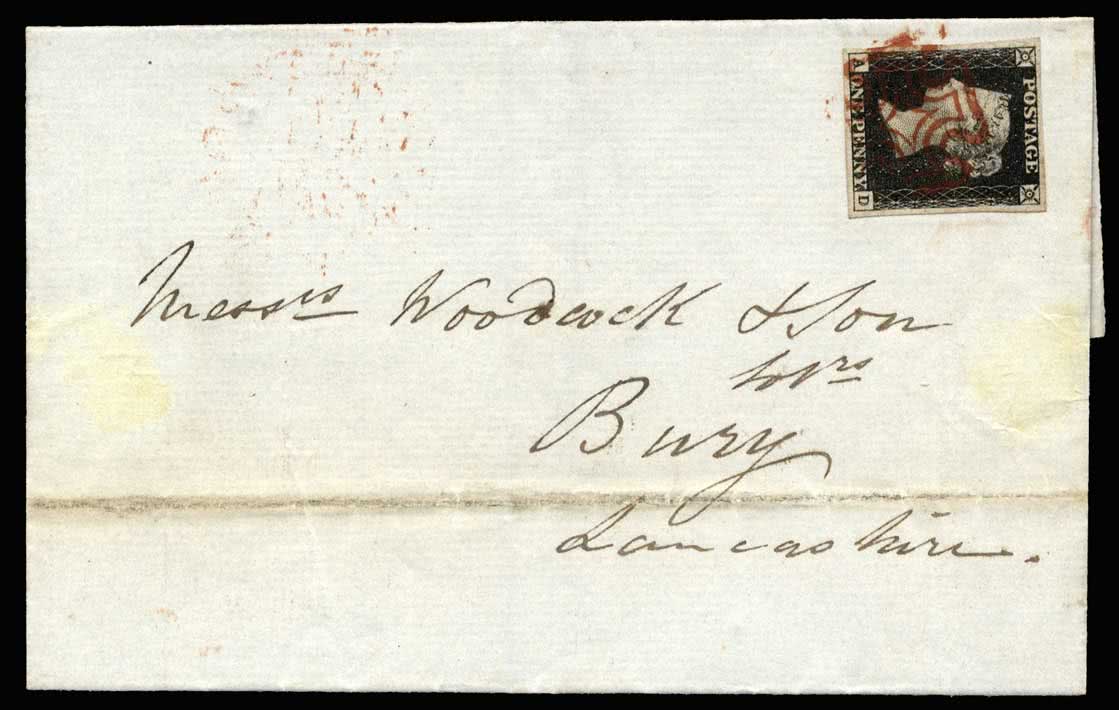 POSTAGE
A ONE PENNY D
Messrs Woodcock & Son
Solrs
Bury
Lancashire.